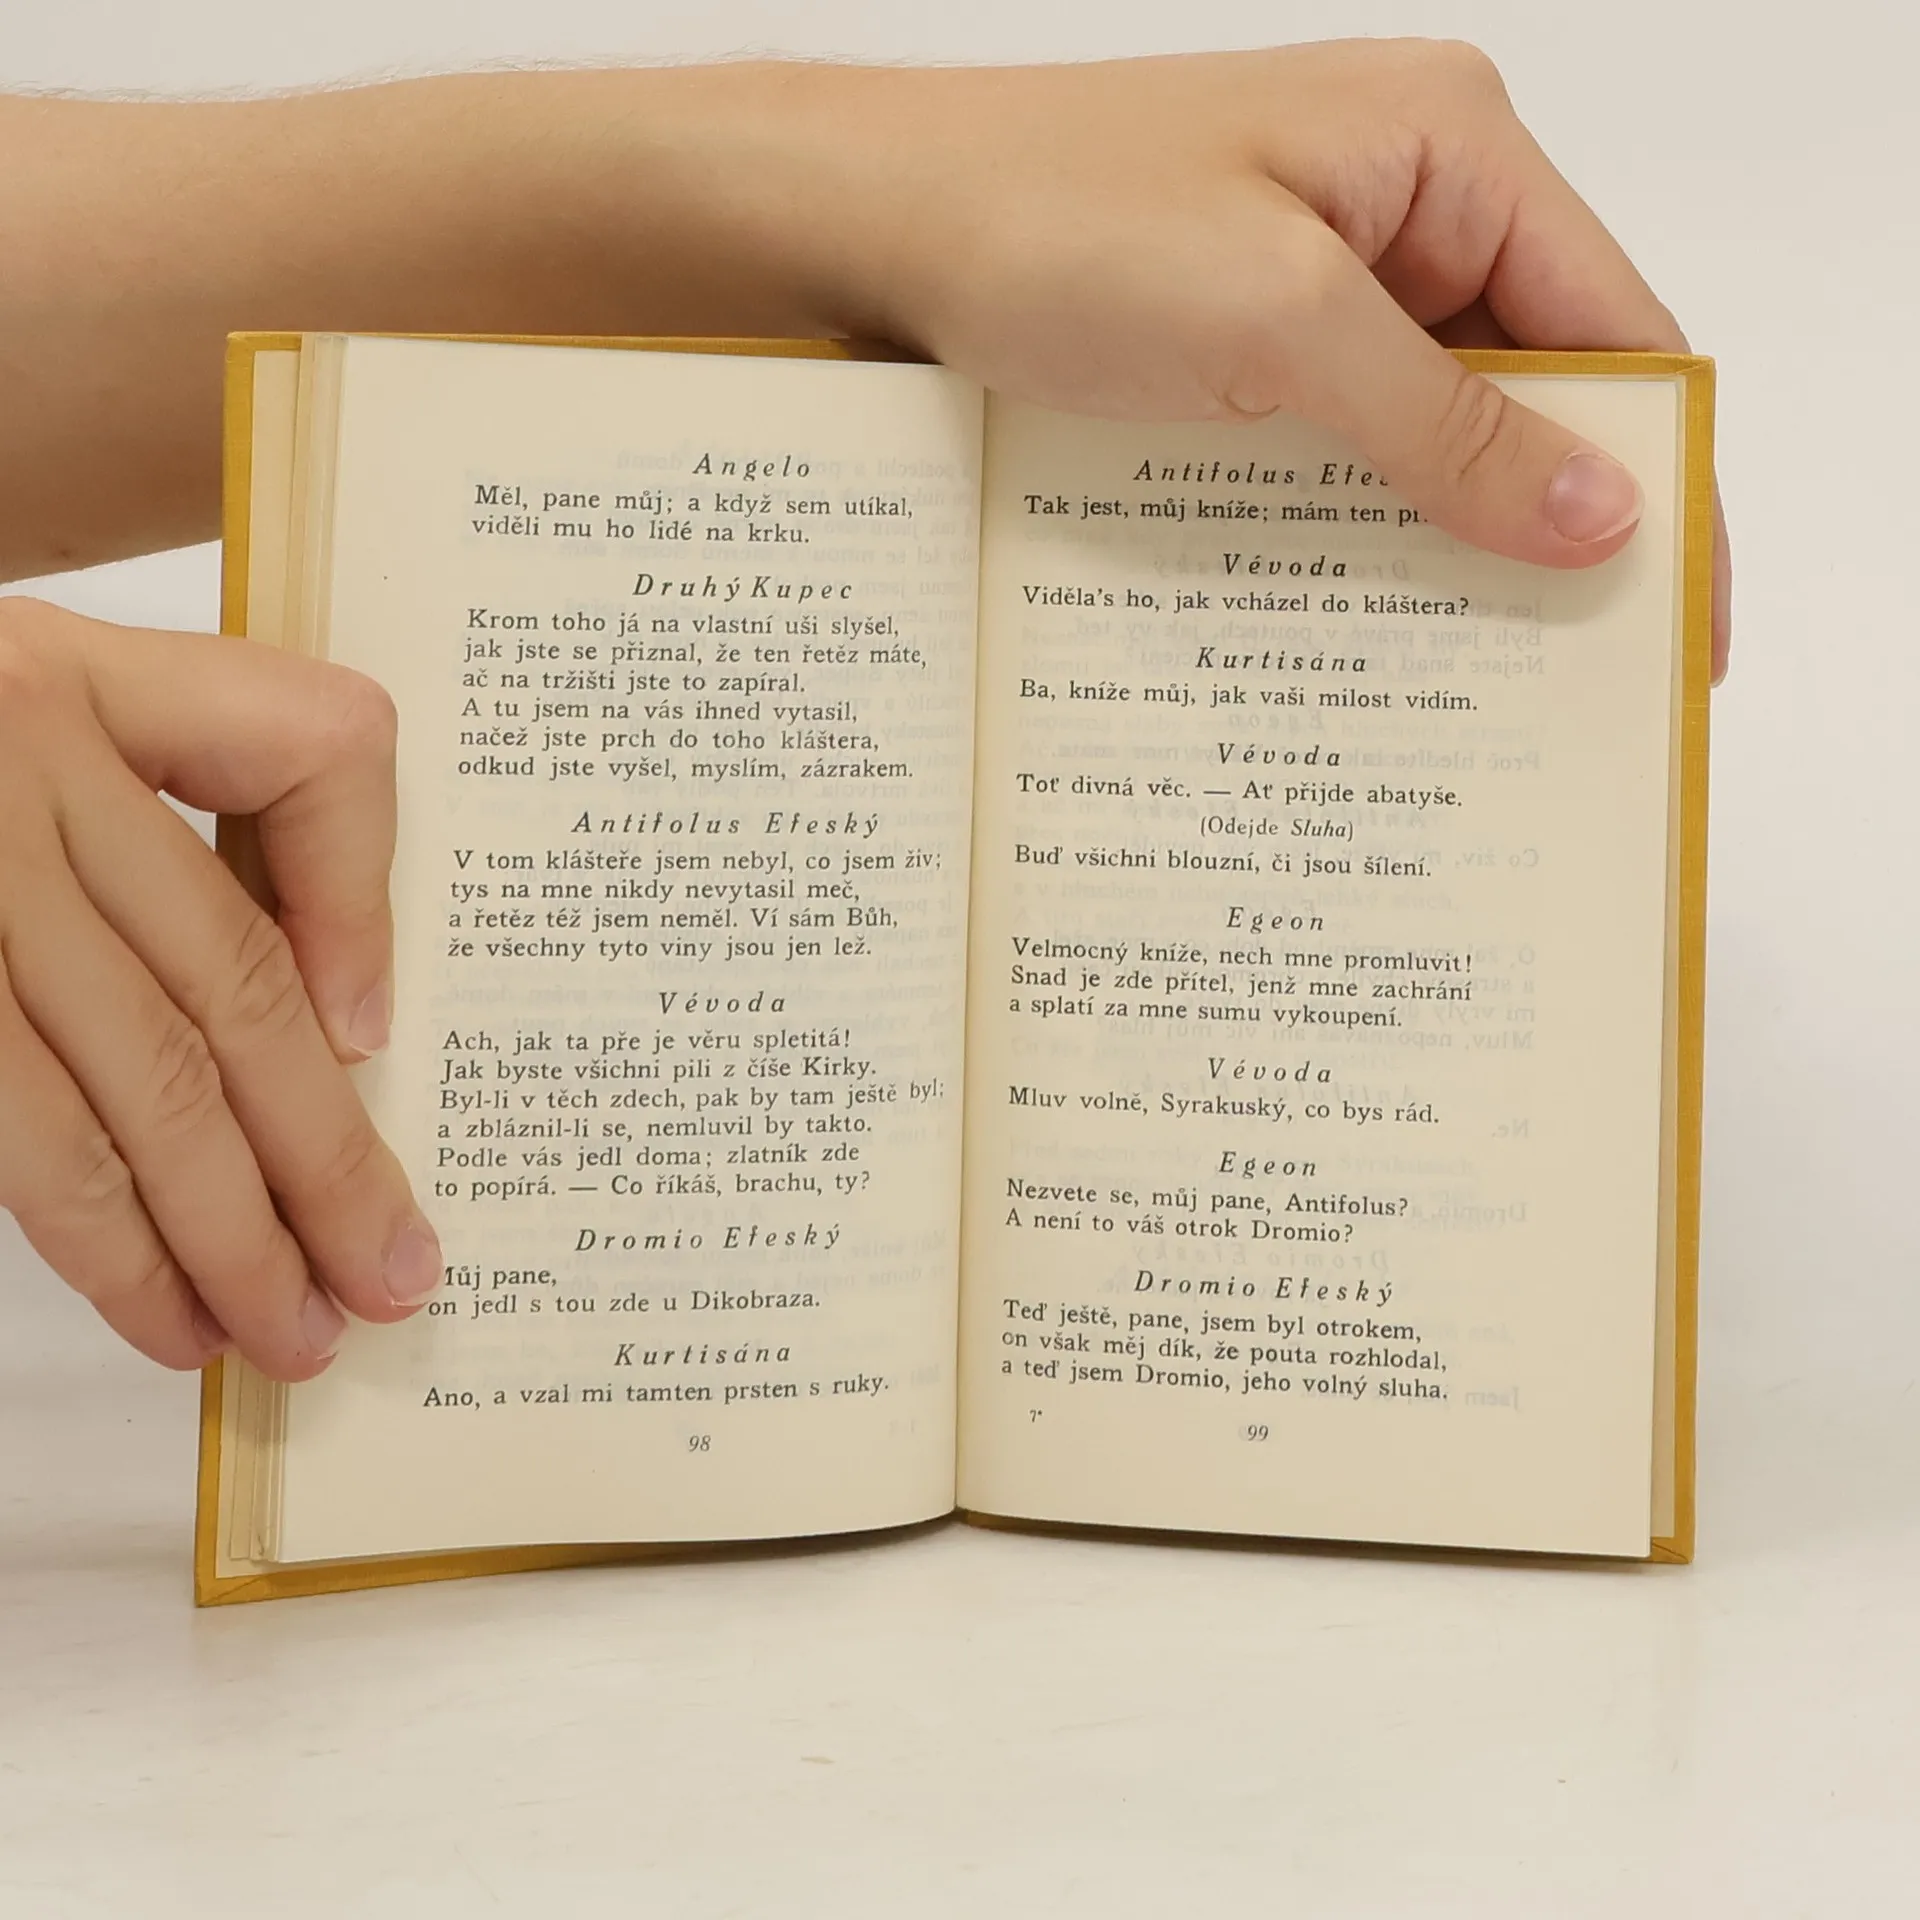 Angelo
Měl, pane můj; a když sem utíkal,
viděli mu ho lidé na krku.
Druhý Kupec
Krom toho já na vlastní uši slyšel,
jak jste se přiznal, že ten řetěz máte,
ač na tržišti jste to zapíral.
A tu jsem na vás ihned vytasil,
načež jste prch do toho kláštera,
odkud jste vyšel, myslím, zázrakem.
Antifolus Efeský
V tom klášteře jsem nebyl, co jsem živ;
tys na mne nikdy nevytasil meč,
a řetěz též jsem neměl. Ví sám Bůh,
že všechny tyto viny jsou jen lež.
Vévoda
Ach, jak ta pře je věru spletitá!
Jak byste všichni pili z číše Kirky.
Byl-li v těch zdech, pak by tam ještě byl;
a zbláznil-li se, nemluvil by takto.
Podle vás jedl doma; zlatník zde
to popírá. — Co říkáš, brachu, ty?
Dromio Efeský
Můj pane,
on jedl s tou zde u Dikobraza.
Kurtisána
Ano, a vzal mi tamten prsten s ruky.
98
Antifolus
Tak jest, můj kníže; mám ten
Vévoda
Viděla's ho, jak vcházel do kláštera?
Kurtisána
Ba, kníže můj, jak vaši milost vidím.
Vévoda
Toť divná věc. — Ať přijde abatyše.
(Odejde Sluha)
Buď všichni blouzní, či jsou šílení.
Egeon
Velmocný kníže, nech mne promluvit!
Snad je zde přítel, jenž mne zachrání
a splatí za mne sumu vykoupení.
Vévoda
Mluv volně, Syrakuský, co bys rád.
Egeon
Nezvete se, můj pane, Antifolus?
A není to váš otrok Dromio?
Dromio Efeský
Teď ještě, pane, jsem byl otrokem,
on však měj dík, že pouta rozhlodal,
a teď jsem Dromio, jeho volný sluha.
7*
99